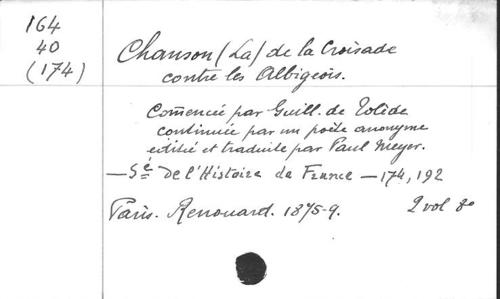 164
40
(174)
Chanson (La) de la Croisade
contre les Albigeois.
Comencée par Guill. de Tolède
continuée par un poète anonyme
édité et traduite par Paul Meyer.
— Sé de l'Histoire de France — 174, 192
Paris. Renouard. 1875-9. 2 vol 8º